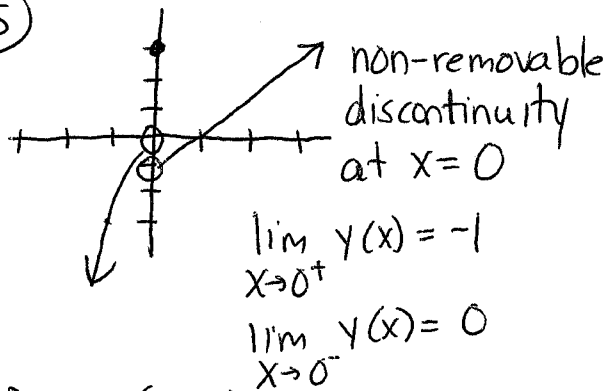 5
non-removable
discontinuity
at x=0
lim y(x) = -1
x→0⁺
lim y(x) = 0
x→0⁻